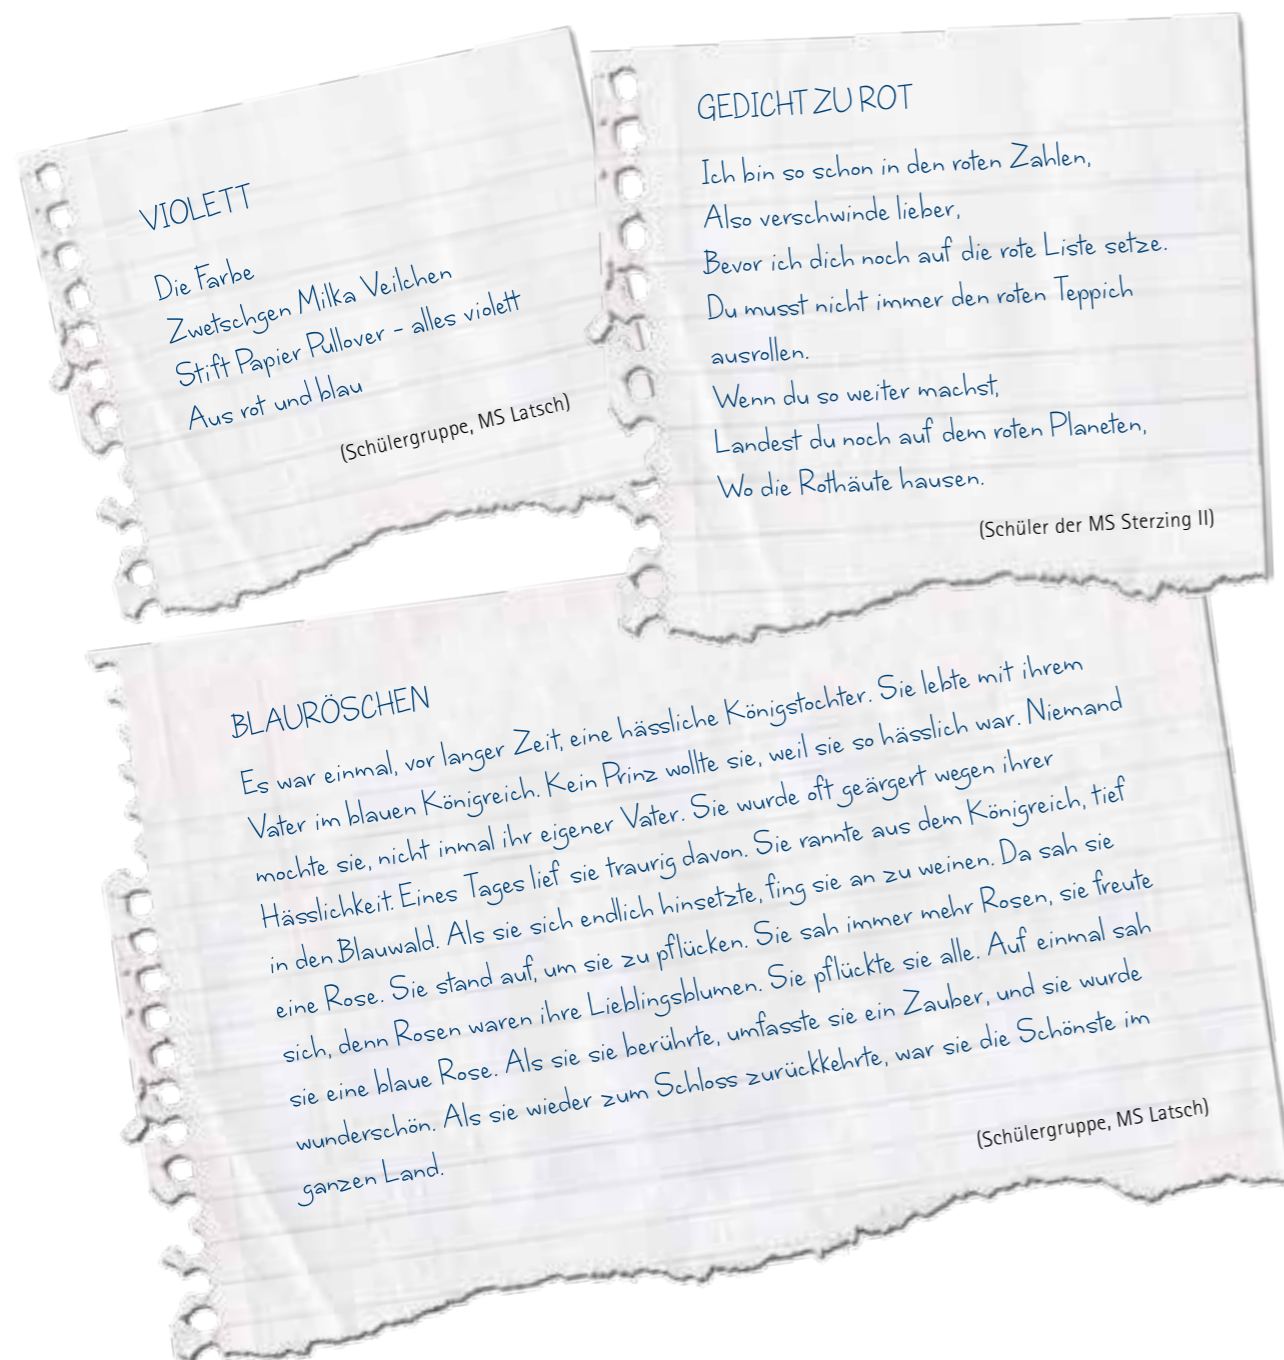 VIOLETT
Die Farbe
Zwetschgen Milka Veilchen
Stift Papier Pullover – alles violett
Aus rot und blau
(Schülergruppe, MS Latsch)
GEDICHT ZU ROT
Ich bin so schon in den roten Zahlen,
Also verschwinde lieber,
Bevor ich dich noch auf die rote Liste setze.
Du musst nicht immer den roten Teppich
ausrollen.
Wenn du so weiter machst,
Landest du noch auf dem roten Planeten,
Wo die Rothäute hausen.
(Schüler der MS Sterzing II)
BLAURÖSCHEN
Es war einmal, vor langer Zeit, eine hässliche Königstochter. Sie lebte mit ihrem
Vater im blauen Königreich. Kein Prinz wollte sie, weil sie so hässlich war. Niemand
mochte sie, nicht inmal ihr eigener Vater. Sie wurde oft geärgert wegen ihrer
Hässlichkeit. Eines Tages lief sie traurig davon. Sie rannte aus dem Königreich, tief
in den Blauwald. Als sie sich endlich hinsetzte, fing sie an zu weinen. Da sah sie
eine Rose. Sie stand auf, um sie zu pflücken. Sie sah immer mehr Rosen, sie freute
sich, denn Rosen waren ihre Lieblingsblumen. Sie pflückte sie alle. Auf einmal sah
sie eine blaue Rose. Als sie sie berührte, umfasste sie ein Zauber, und sie wurde
wunderschön. Als sie wieder zum Schloss zurückkehrte, war sie die Schönste im
ganzen Land.
(Schülergruppe, MS Latsch)